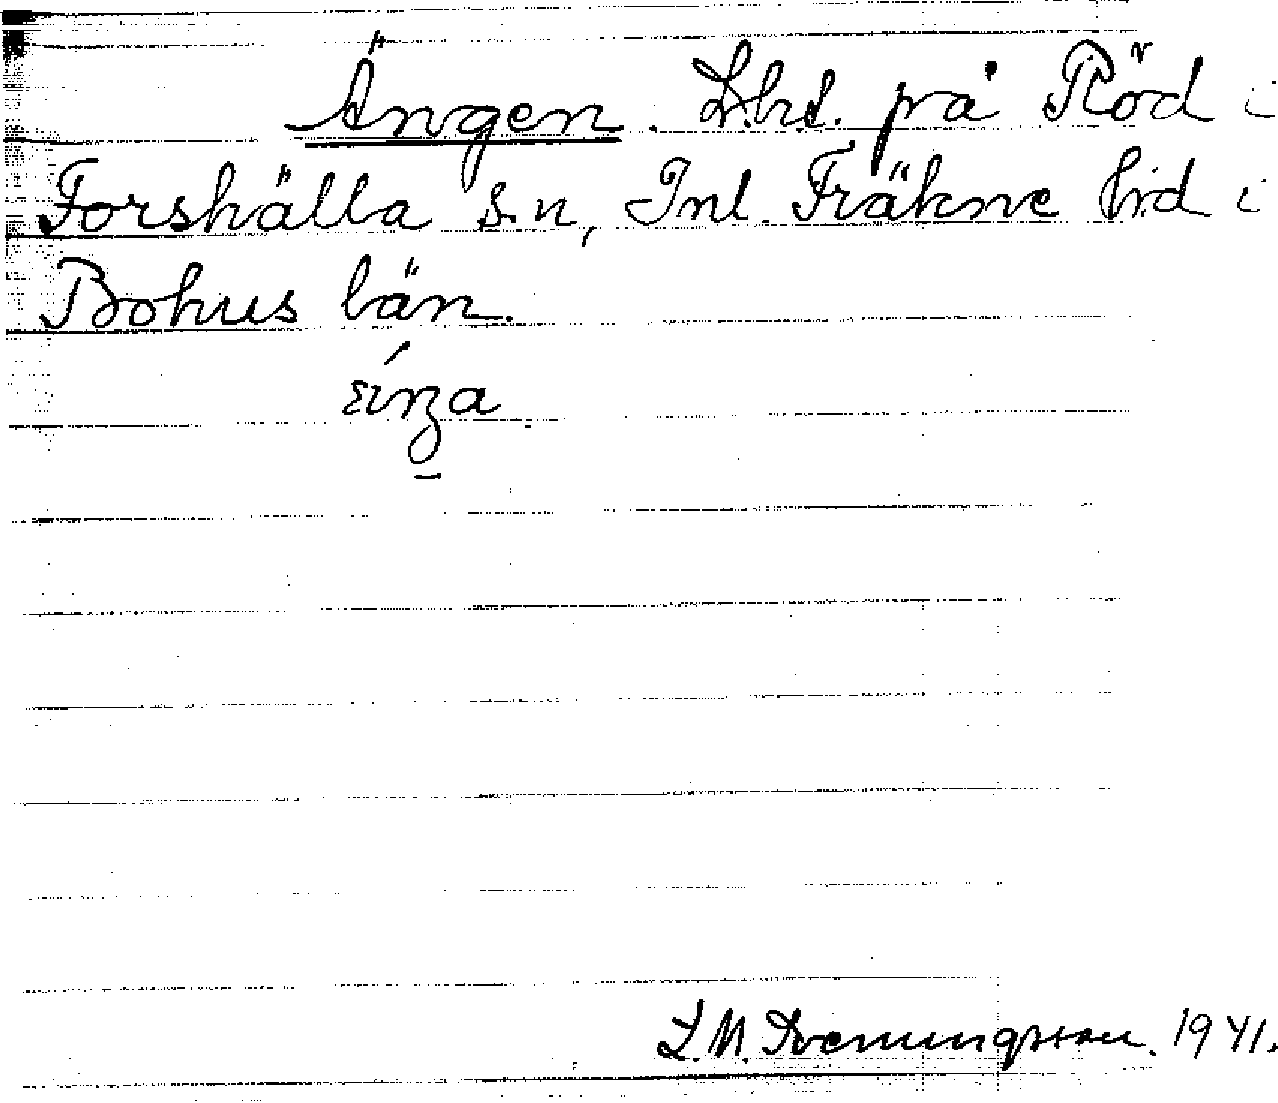 Ängen. L.ht. på Röd i
Forshälla s.n, Inl. Fräkne hd i
Bohus län.
L.M. Svenungsson. 1941.